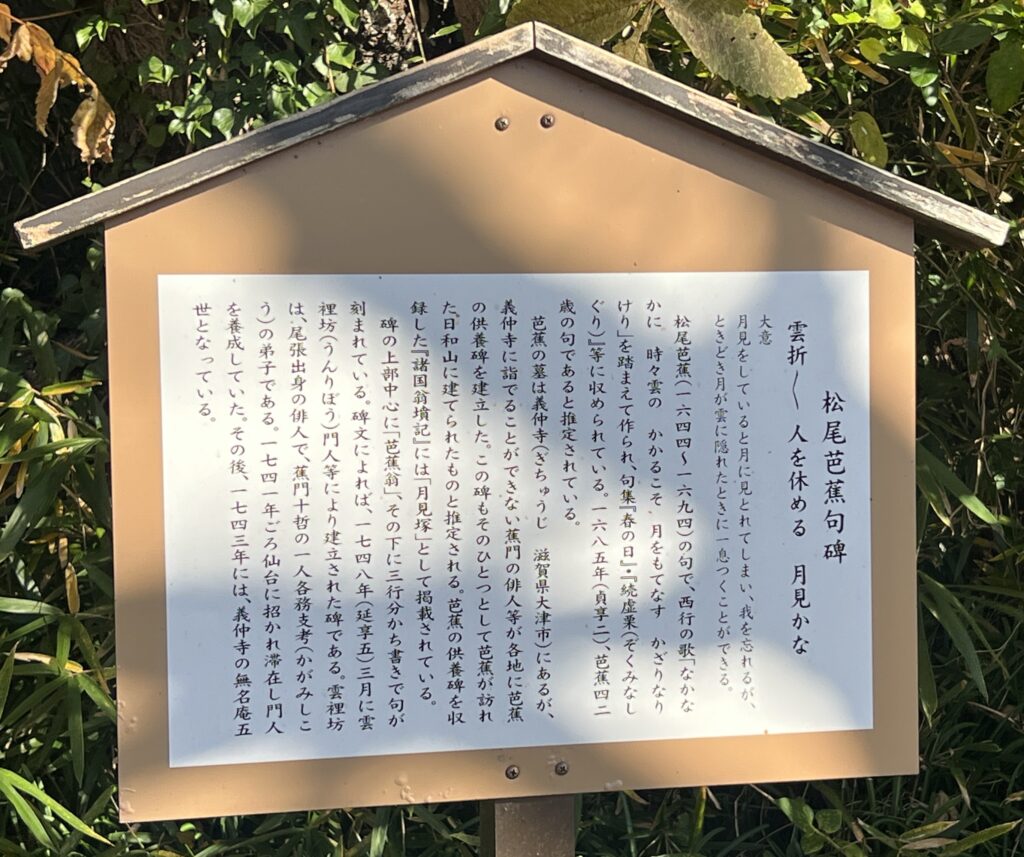 松尾芭蕉句碑
雲折〳〵　人を休める　月見かな
大意
月見をしていると月に見とれてしまい、我を忘れるが、
ときどき月が雲に隠れたときに一息つくことができる。
松尾芭蕉(一六四四～一六九四)の句で、西行の歌「なかな
かに　時々雲の　かかるこそ　月をもてなす　かざりなり
けり」を踏まえて作られ、句集『春の日』・『続虚栗(ぞくみなし
ぐり)』等に収められている。一六八五年(貞享二)、芭蕉四二
歳の句であると推定されている。
芭蕉の墓は義仲寺(ぎちゅうじ　滋賀県大津市)にあるが、
義仲寺に詣でることができない蕉門の俳人等が各地に芭蕉
の供養碑を建立した。この碑もそのひとつとして芭蕉が訪れ
た日和山に建てられたものと推定される。芭蕉の供養碑を収
録した『諸国翁墳記』には「月見塚」として掲載されている。
碑の上部中心に「芭蕉翁」、その下に三行分かち書きで句が
刻まれている。碑文によれば、一七四八年(延享五)三月に雲
裡坊(うんりぼう)門人等により建立された碑である。雲裡坊
は、尾張出身の俳人で、蕉門十哲の一人各務支考(かがみしこ
う)の弟子である。一七四一年ごろ仙台に招かれ滞在し門人
を養成していた。その後、一七四三年には、義仲寺の無名庵五
世となっている。